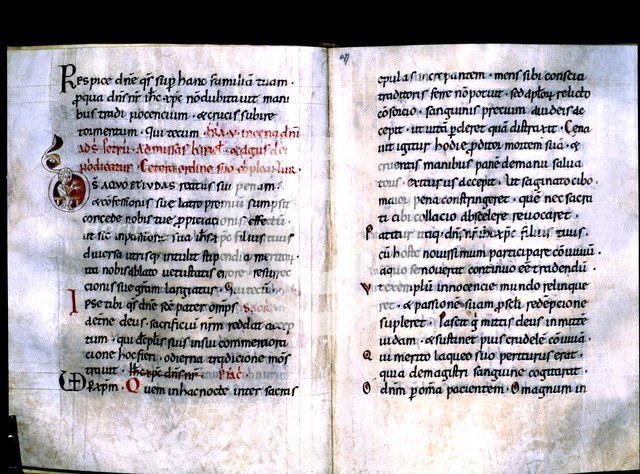 Respice dne qs sup hanc familia tuam ·
p qua dns nr ihc xpc n dubitavit mani
bus tradi nocencium · & crucis subire
tormentum · Qui tecum ·
Ceteri ordine suo
DS a quo et iudas reatus sui penam ·
& c̄fessionis sue latro premiu sumpsit
concede nobis tue ppiciacionis effectu ·
ut sic in passione sua ihs xpc filius tuus
diversa utrisq; intulit stipendia meritor
ita nobis ablato uetustatis errore · resurrec
cionis sue gram largiatur · Qui tecu
Ipse tibi qs dne sce pater omps ·
aetne deus · sacrificiu nrm reddat accep
tum · qui disciplis suis in sui commemora
cione hoc fieri · odierna tradicione mons
travit · ihc xpc dns nr ·
Quem in hac nocte inter sacras
epulas increpantem · mens sibi conscia
traditoris ferre non potuit · sed aplor relicto
consorcio · sanguinis precium a iudeis ac
cepit · ut vita pderet qua distraxit · Cena
vit igitur hodie pditor mortem sua · &
cruentis manibus pane de manu salva
toris · exiturus accepit · Ut saginato cibo ·
maior pena constringeret · que nec sacra
ti cibi collacio ab scelere revocaret ·
Patitur itaq; dns nr ihc xpc filius tuus ·
cu hoste novissimum participare conviviu ·
a quo se noverat continuo ee tradendu ·
Ut exemplu innocencie mundo relinque
ret · & passione sua p scli redepcione
suppleret · Pascit g mittis deus inmite
iudam · & sustinet pius crudele convivā ·
Qui merito laqueo suo periturus erat ·
quia de magistri sanguine cogitarat ·
O dnm p omia pacientem · O magnum in